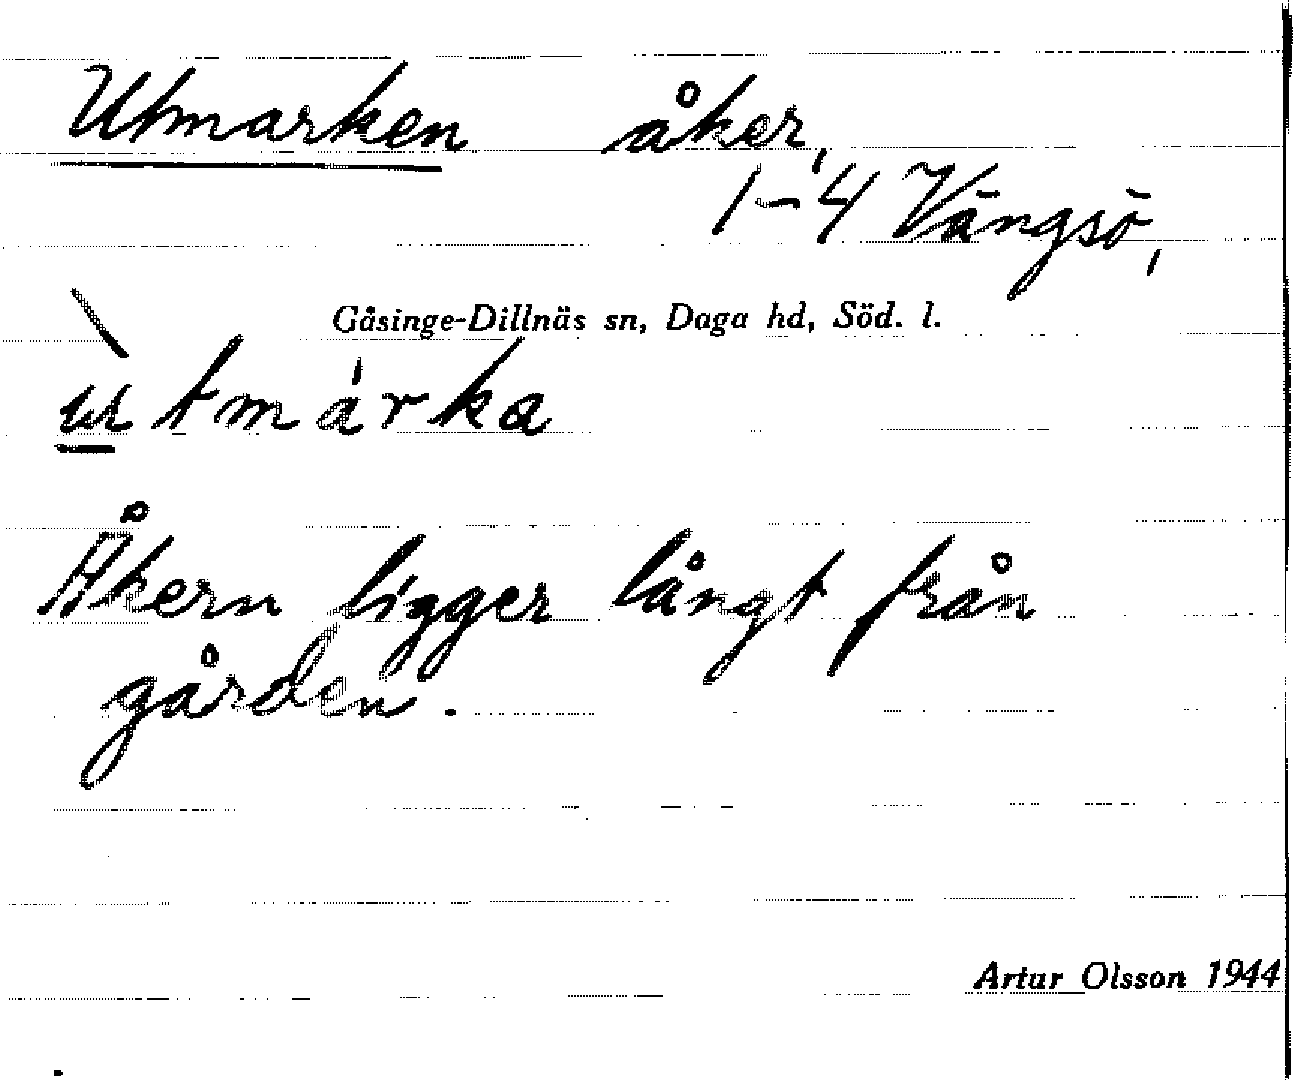 Utmarken åker,
1-4 Vängsö,
Gåsinge-Dillnäs sn, Daga hd, Söd. l.
ù t m á r k a
Åkern ligger långt från
gården.
Artur Olsson 1944